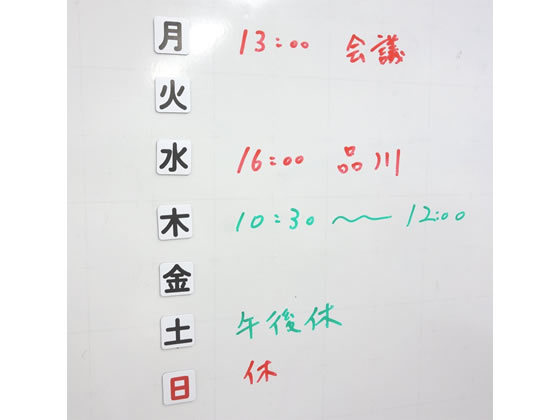 月 13:00 会議
火
水 16:00 品川
木 10:30 〜 12:00
金
土 午後休
日 休